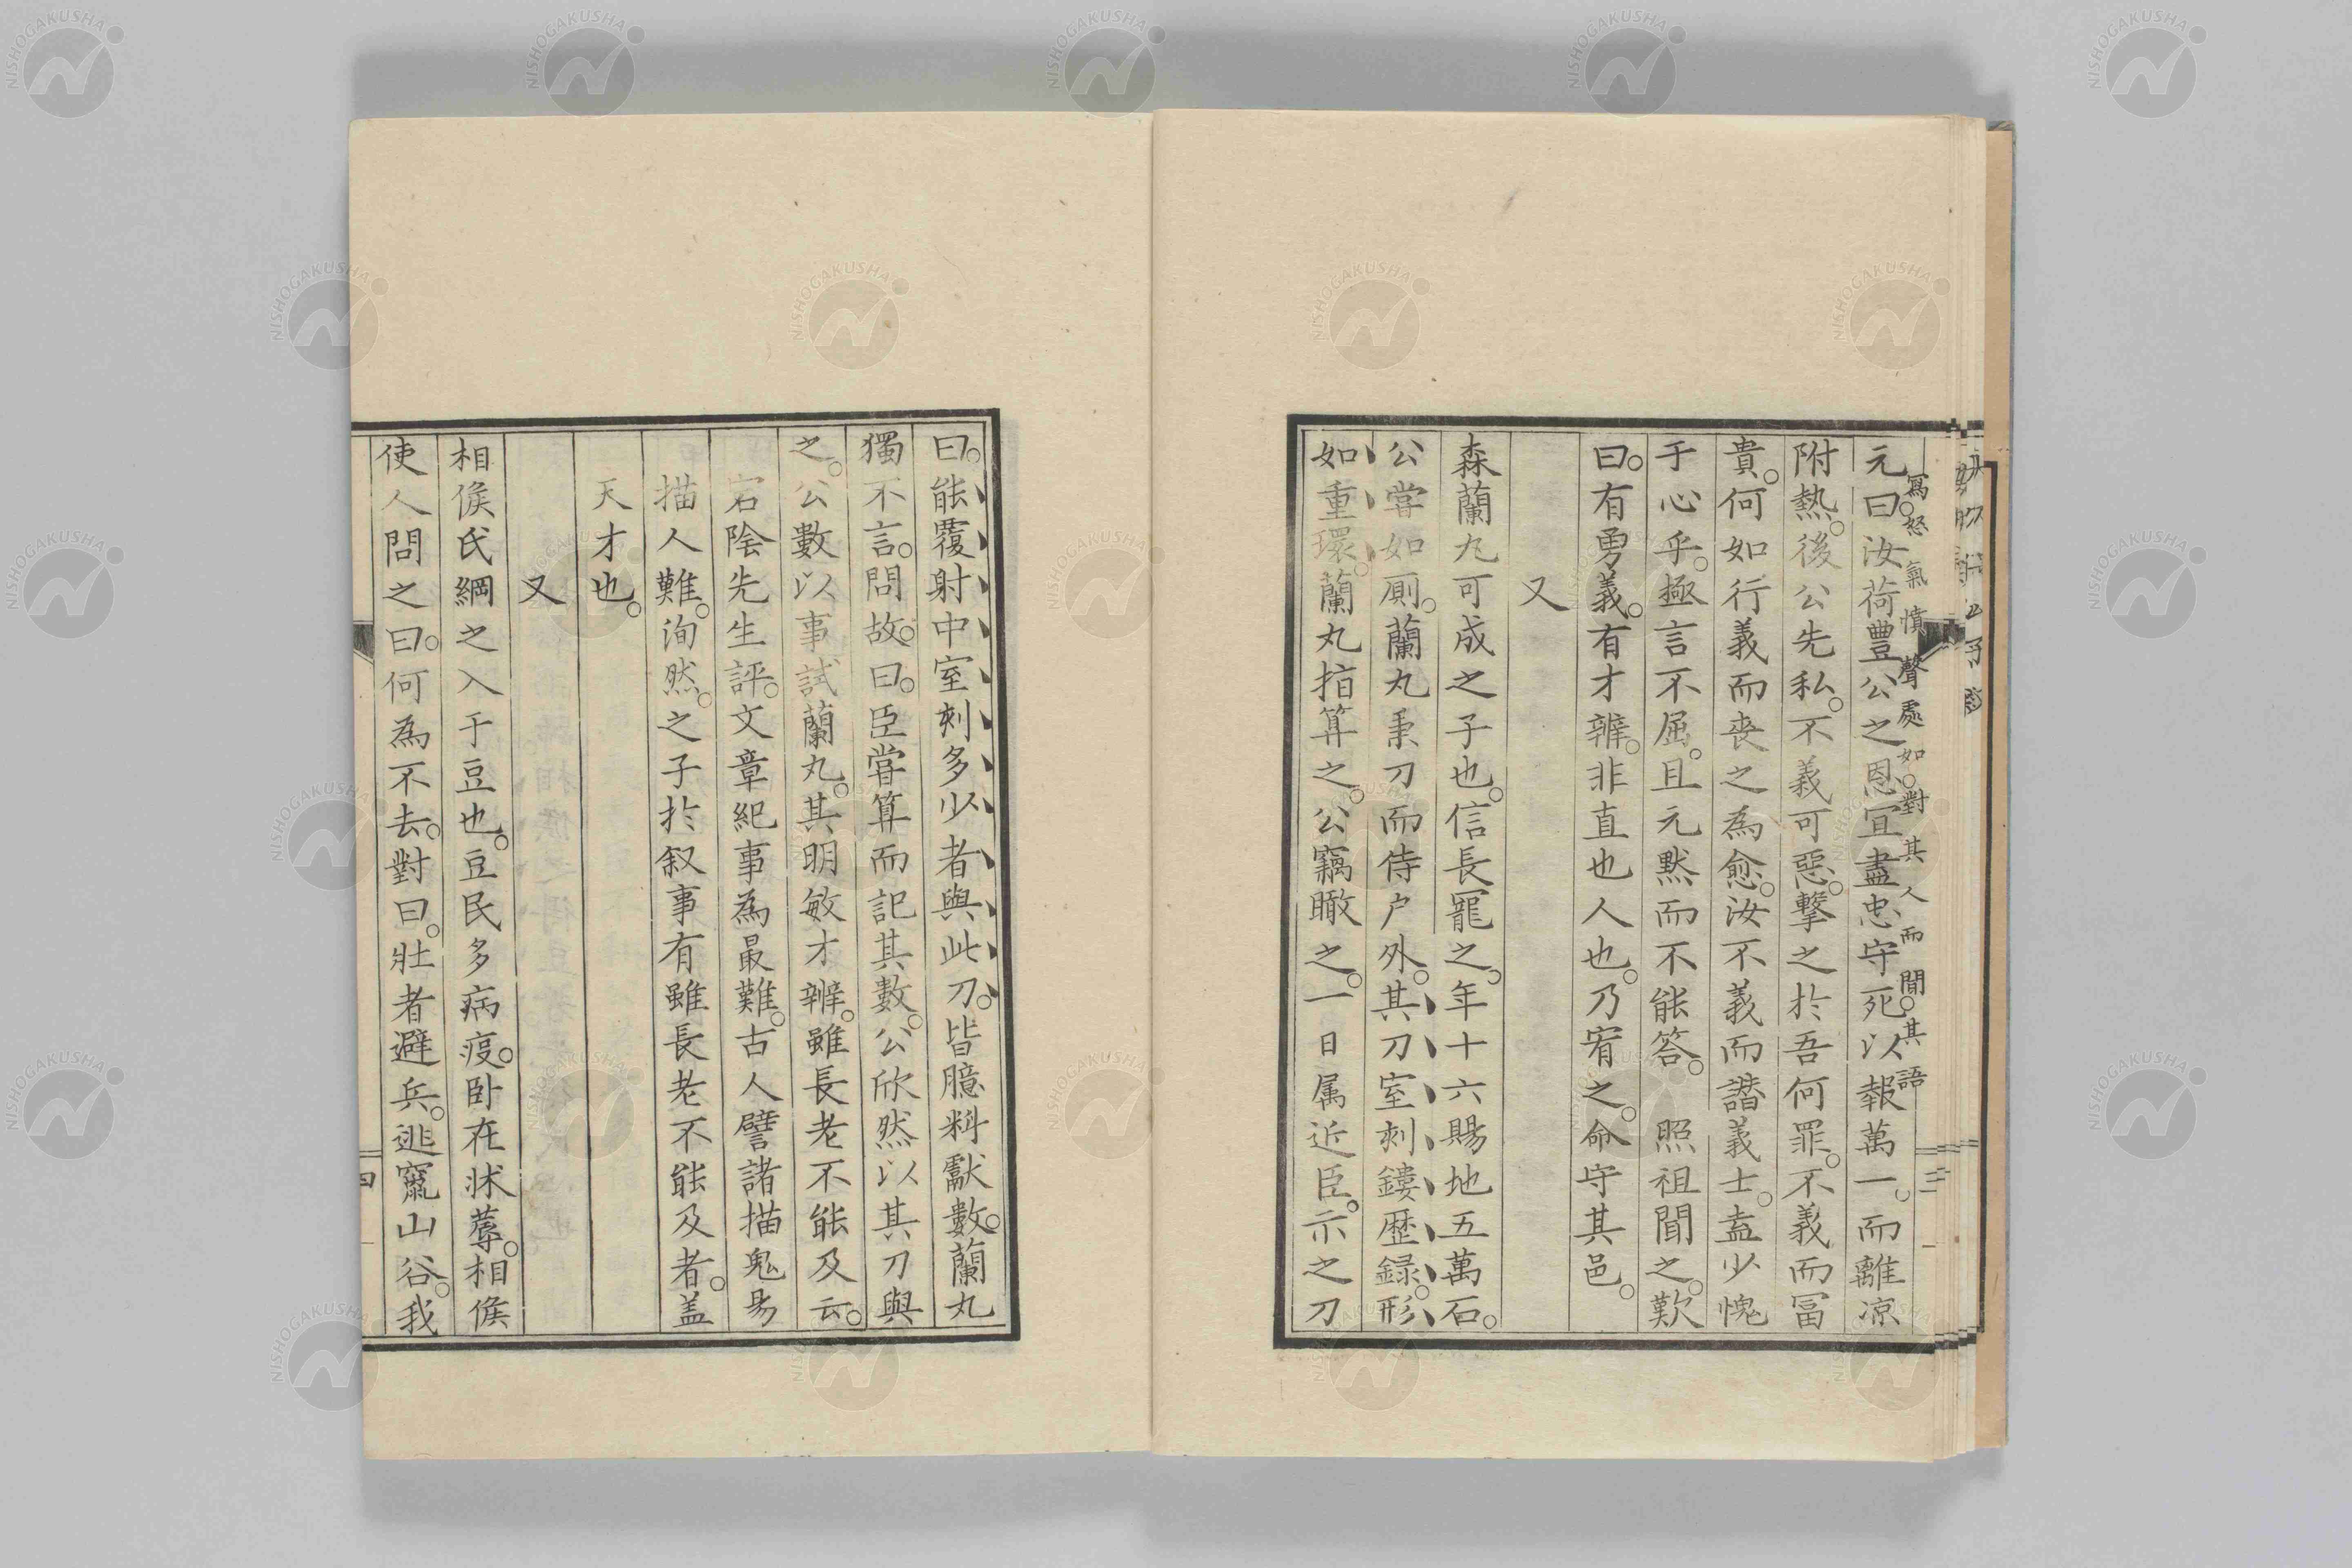 寫怒氣憤聲處如對其人而聞其語
元曰。汝荷豐公之恩。宜盡忠守死以報萬一。而離凉
附熱。後公先私。不義可惡。擊之於吾何罪。不義而冨
貴。何如行義而喪之為愈。汝不義而譛義士。盍少愧
于心乎。極言不屈。且元黙而不能答。照祖聞之。歎
曰。有勇義。有才辨。非直也人也。乃宥之。命守其邑。
又
森蘭丸可成之子也。信長寵之。年十六賜地五萬石。
公嘗如厠。蘭丸秉刀而侍户外。其刀室刺鏤歴録。形
如重環。蘭丸指算之。公竊瞰之。一日属近臣。示之刀
曰。能覆射中室刺多少者與此刀。皆臆料獻數。蘭丸
獨不言。問故。曰。臣嘗算而記其數。公欣然以其刀與
之。公數以事試蘭丸。其明敏才辨。雖長老不能及云。
宕陰先生評。文章紀事為最難。古人譬諸描鬼易
描人難。洵然。之子於叙事有雖長老不能及者。盖
天才也。
又
相侯氏綱之入于豆也。豆民多病疫。卧在牀蓐。相侯
使人問之曰。何為不去。對曰。壯者避兵。逃竄山谷。我
四